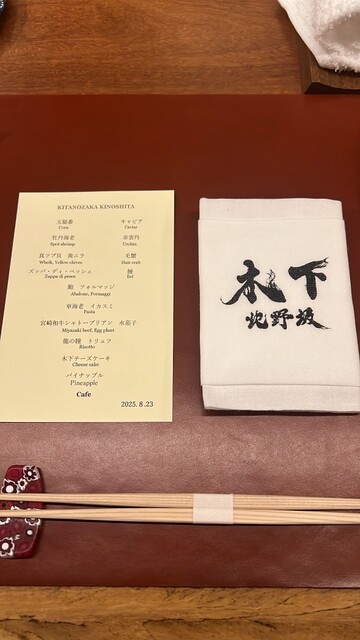 KITANOZAKA KINOSHITA
玉蜀黍 キャビア
Corn Caviar
牡丹海老 赤雲丹
Spot shrimp Urchin
真ツブ貝 黄ニラ 毛蟹
Whelk, Yellow chives Hair crab
ズッパ・ディ・ペッシェ 鰻
Zuppa di pesce Eel
鮑 フォルマッジ
Abalone, Formaggi
車海老 イカスミ
Pasta
宮崎和牛シャトーブリアン 水茄子
Miyazaki beef, Egg plant
龍の瞳 トリュフ
Risotto
木下チーズケーキ
Cheese cake
パイナップル
Pineapple
Cafe
2025. 8 .23
木下
北野坂